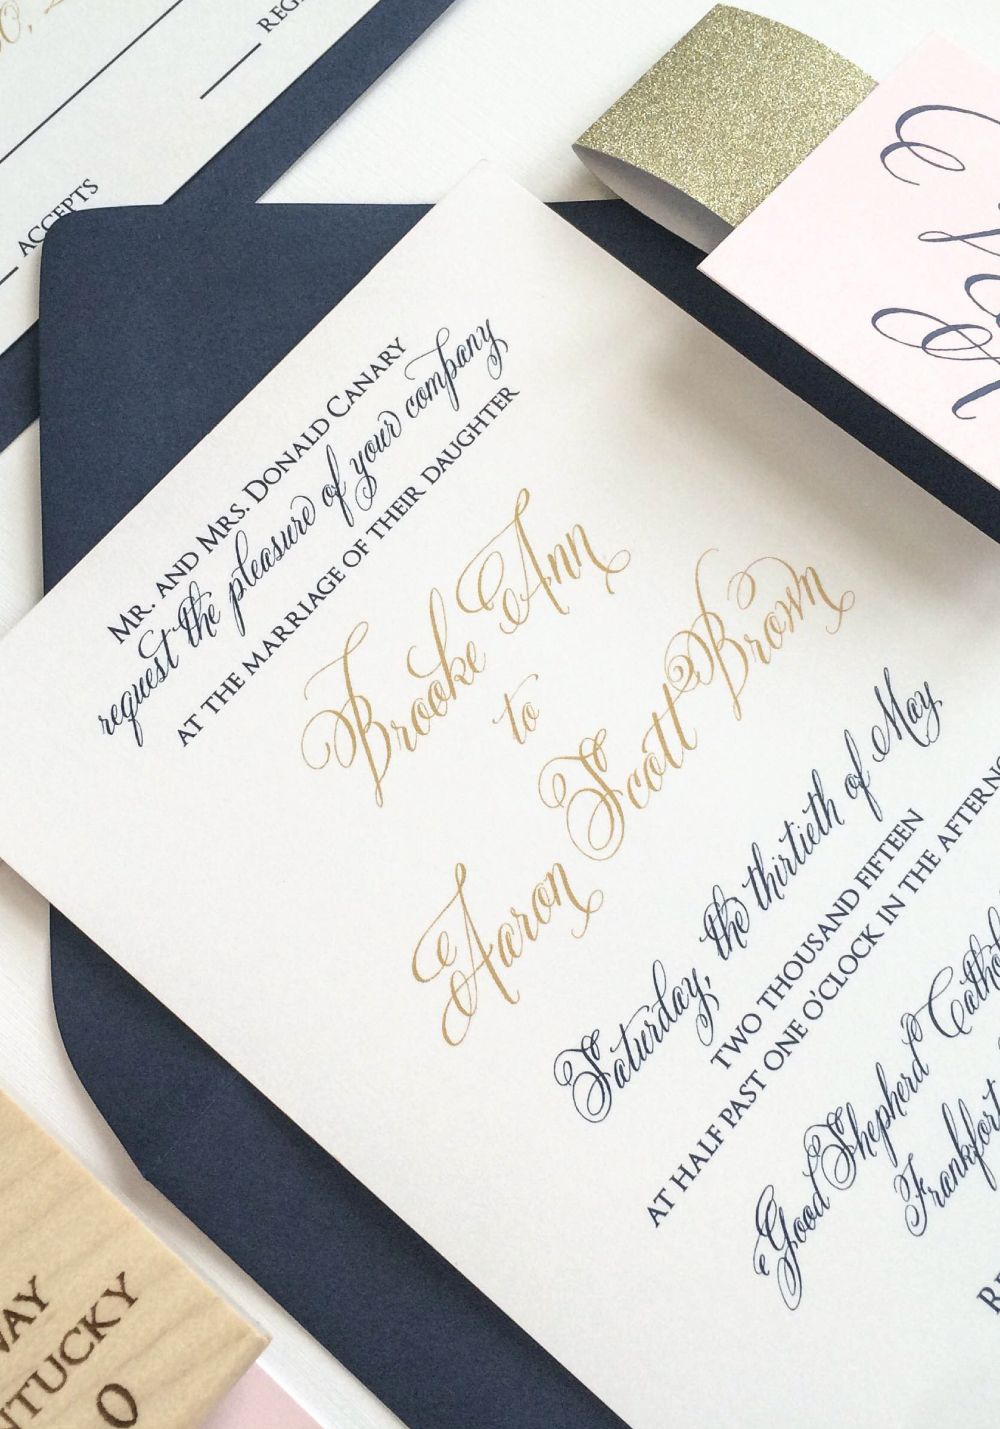 REG
ACCEPTS
MR. AND MRS. DONALD CANARY
request the pleasure of your company
AT THE MARRIAGE OF THEIR DAUGHTER
Brooke Ann
to
Aaron Scott Brown
Saturday, the thirtieth of May
TWO THOUSAND FIFTEEN
AT HALF PAST ONE O'CLOCK IN THE AFTERNO
Good Shepherd Cathol
Frankfort
WAY
NTUCKY
0